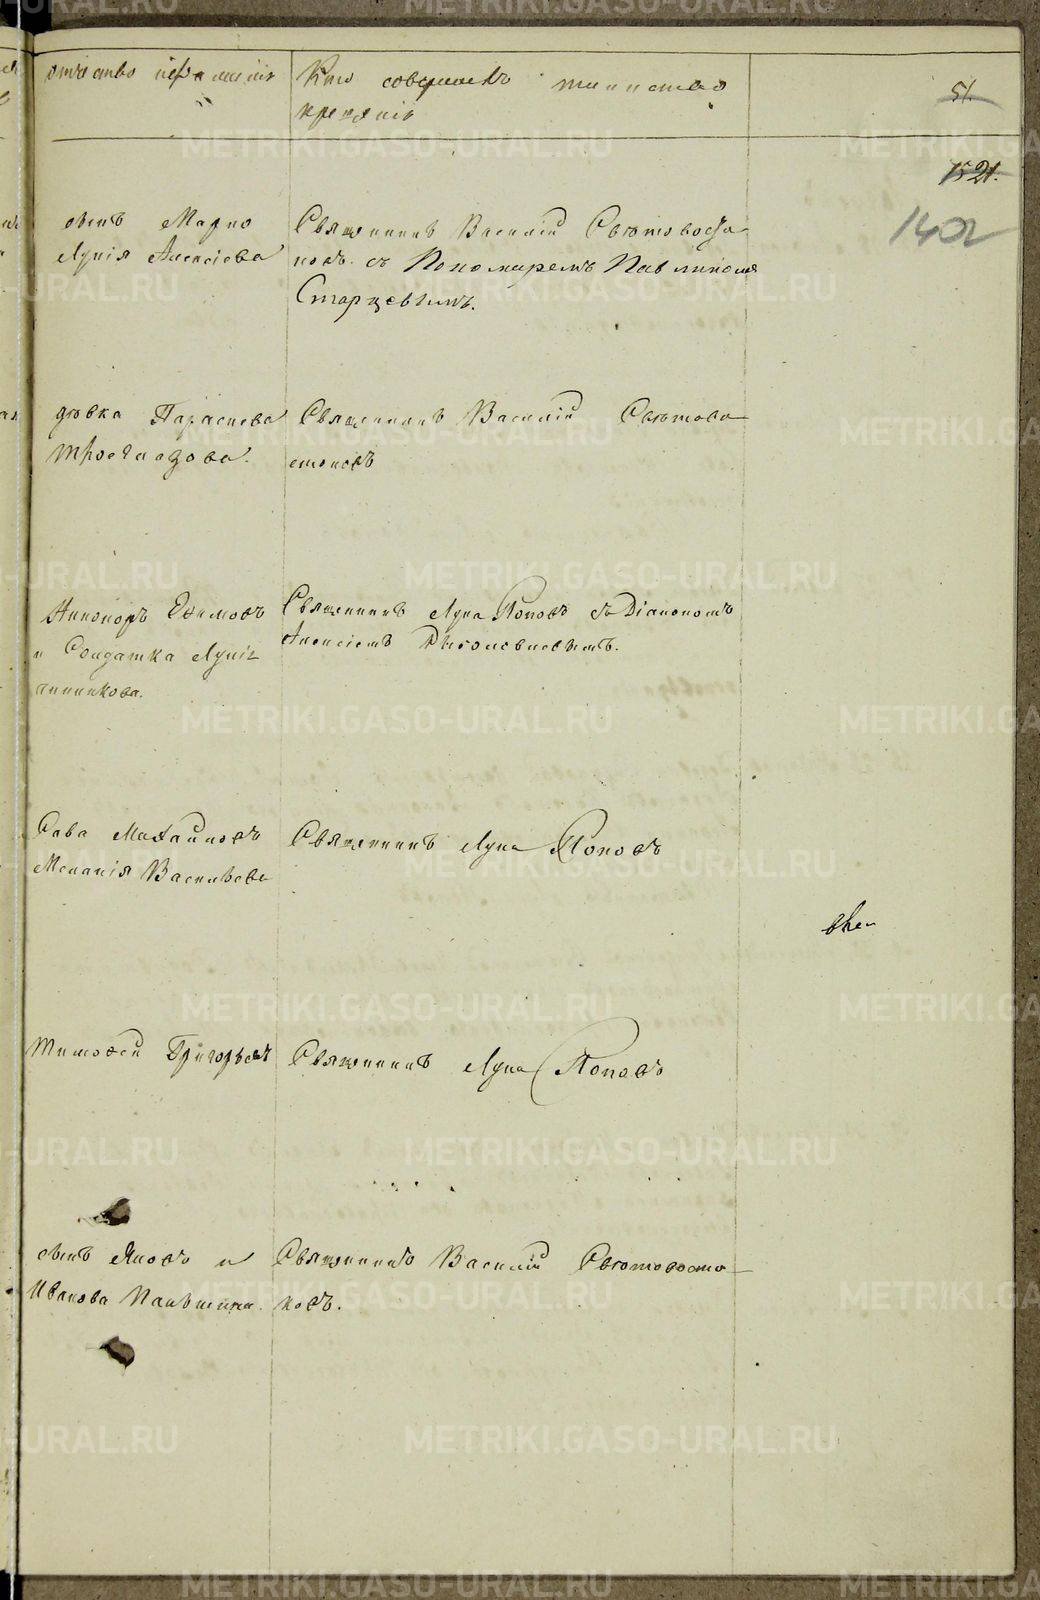 отчество и фамилія
Кто совершалъ таинство
крещенія
51.
1521.
1402
сынъ Марко
Лукія Алексіева
Священникъ Василій Свѣтовосто
ковъ съ Пономаремъ Павлиномъ
Старцевымъ.
дѣвка Параскева
Священникъ Василій Свѣтово
стоковъ
Никоноръ Ефимовъ
и Солдатка Лукія
Священникъ Лука Поповъ съ Діакономъ
Алексіемъ
Сава Михайловъ
Меланія Васильева
Священникъ Лука Поповъ
Тимофей Григорьевъ
Священникъ Лука Поповъ
сынъ Яковъ и
Иванова Паньшина.
Священникъ Василій Свѣтовосто
ковъ.
METRIKI.GASO-URAL.RU